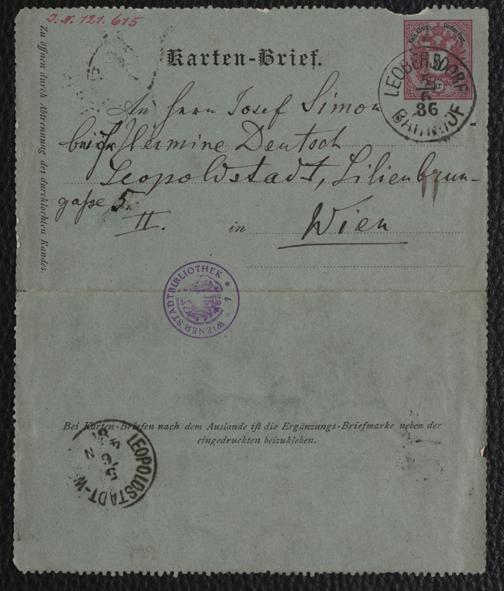 I.N. 121.615
Zu öffnen durch Abtrennung des durchlochten Randes.
Karten-Brief.
LEOBERSDORF
86
BAHNHOF
An Herrn Josef Simon
bei Fr Hermine Deutsch
Leopoldstadt, Lilienbrun-
gaße 5.
II. in Wien
WIENER STADTBIBLIOTHEK
Bei Karten-Briefen nach dem Auslande iſt die Ergänzungs-Briefmarke neben der
eingedruckten beizukleben.
LEOPOLDSTADT-W